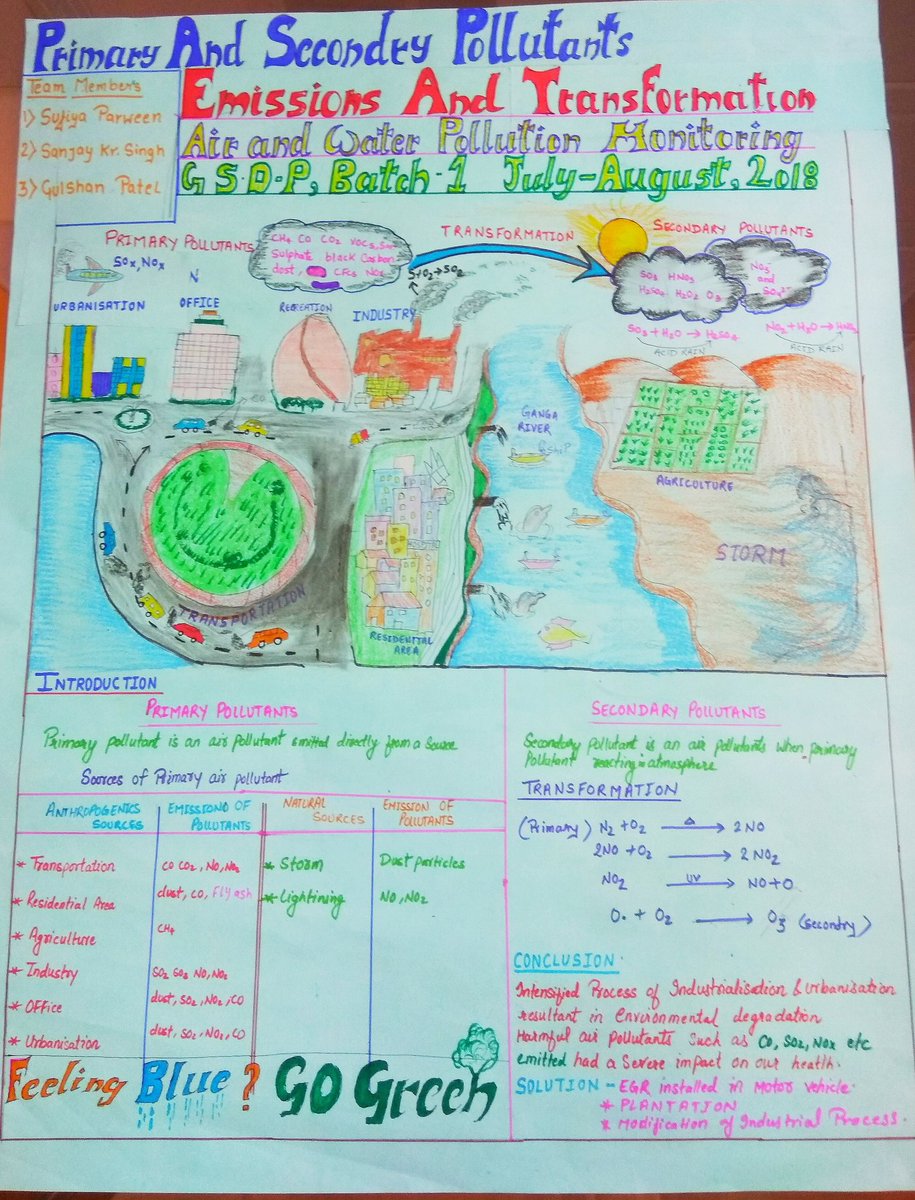 Primary And Secondry Pollutants
Emissions And Transformation
Air and Water Pollution Monitoring
G S.D.P, Batch-1 July-August, 2018
Team Members
1) Sufiya Parween
2) Sanjay Kr. Singh
3) Gulshan Patel
PRIMARY POLLUTANTS
CH4 CO CO2 VOCs,
Sulphate black Carbon
dost, CFCs NOx
TRANSFORMATION
SECONDARY POLLUTANTS
SO3 HNO3
H2SO4 H2O2 O3
NO3
and
SO4²⁻
SOx, NOx
N
S+O2→SO2
URBANISATION
OFFICE
RECREATION
INDUSTRY
SO3+H2O → H2SO4
ACID RAIN
NO2+H2O → HNO3
ACID RAIN
GANGA
RIVER
AGRICULTURE
STORM
TRANSPORTATION
RESIDENTIAL
AREA
INTRODUCTION
PRIMARY POLLUTANTS
Primary pollutant is an air pollutant emitted directly from a source
Sources of Primary air pollutant
ANTHROPOGENICS SOURCES
EMISSIONO OF POLLUTANTS
NATURAL SOURCES
EMISSION OF POLLUTANTS
* Transportation CO CO2, NO, NO2 * Storm Dust particles
* Residential Area dust, CO, Fly ash * Lightining NO, NO2
* Agriculture CH4
* Industry SO2 SO3 NO, NO2
* Office dust, SO2, NO2, CO
* Urbanisation dust, SO2, NO2, CO
Feeling Blue ? GO Green
SECONDARY POLLUTANTS
Secondary pollutant is an air pollutants when primary
Pollutant reacting in atmosphere
TRANSFORMATION
(Primary) N2 + O2 —Δ→ 2 NO
2NO + O2 → 2 NO2
NO2 —UV→ NO + O
O. + O2 → O3 (secondry)
CONCLUSION
Intensified Process of Industrialisation & Urbanisation
resultant in Environmental degradation
Harmful air Pollutants Such as CO, SO2, NOx etc
emitted had a Severe impact on our health.
SOLUTION - EGR installed in Motor vehicle.
* PLANTATION
* Modification of Industrial Process.